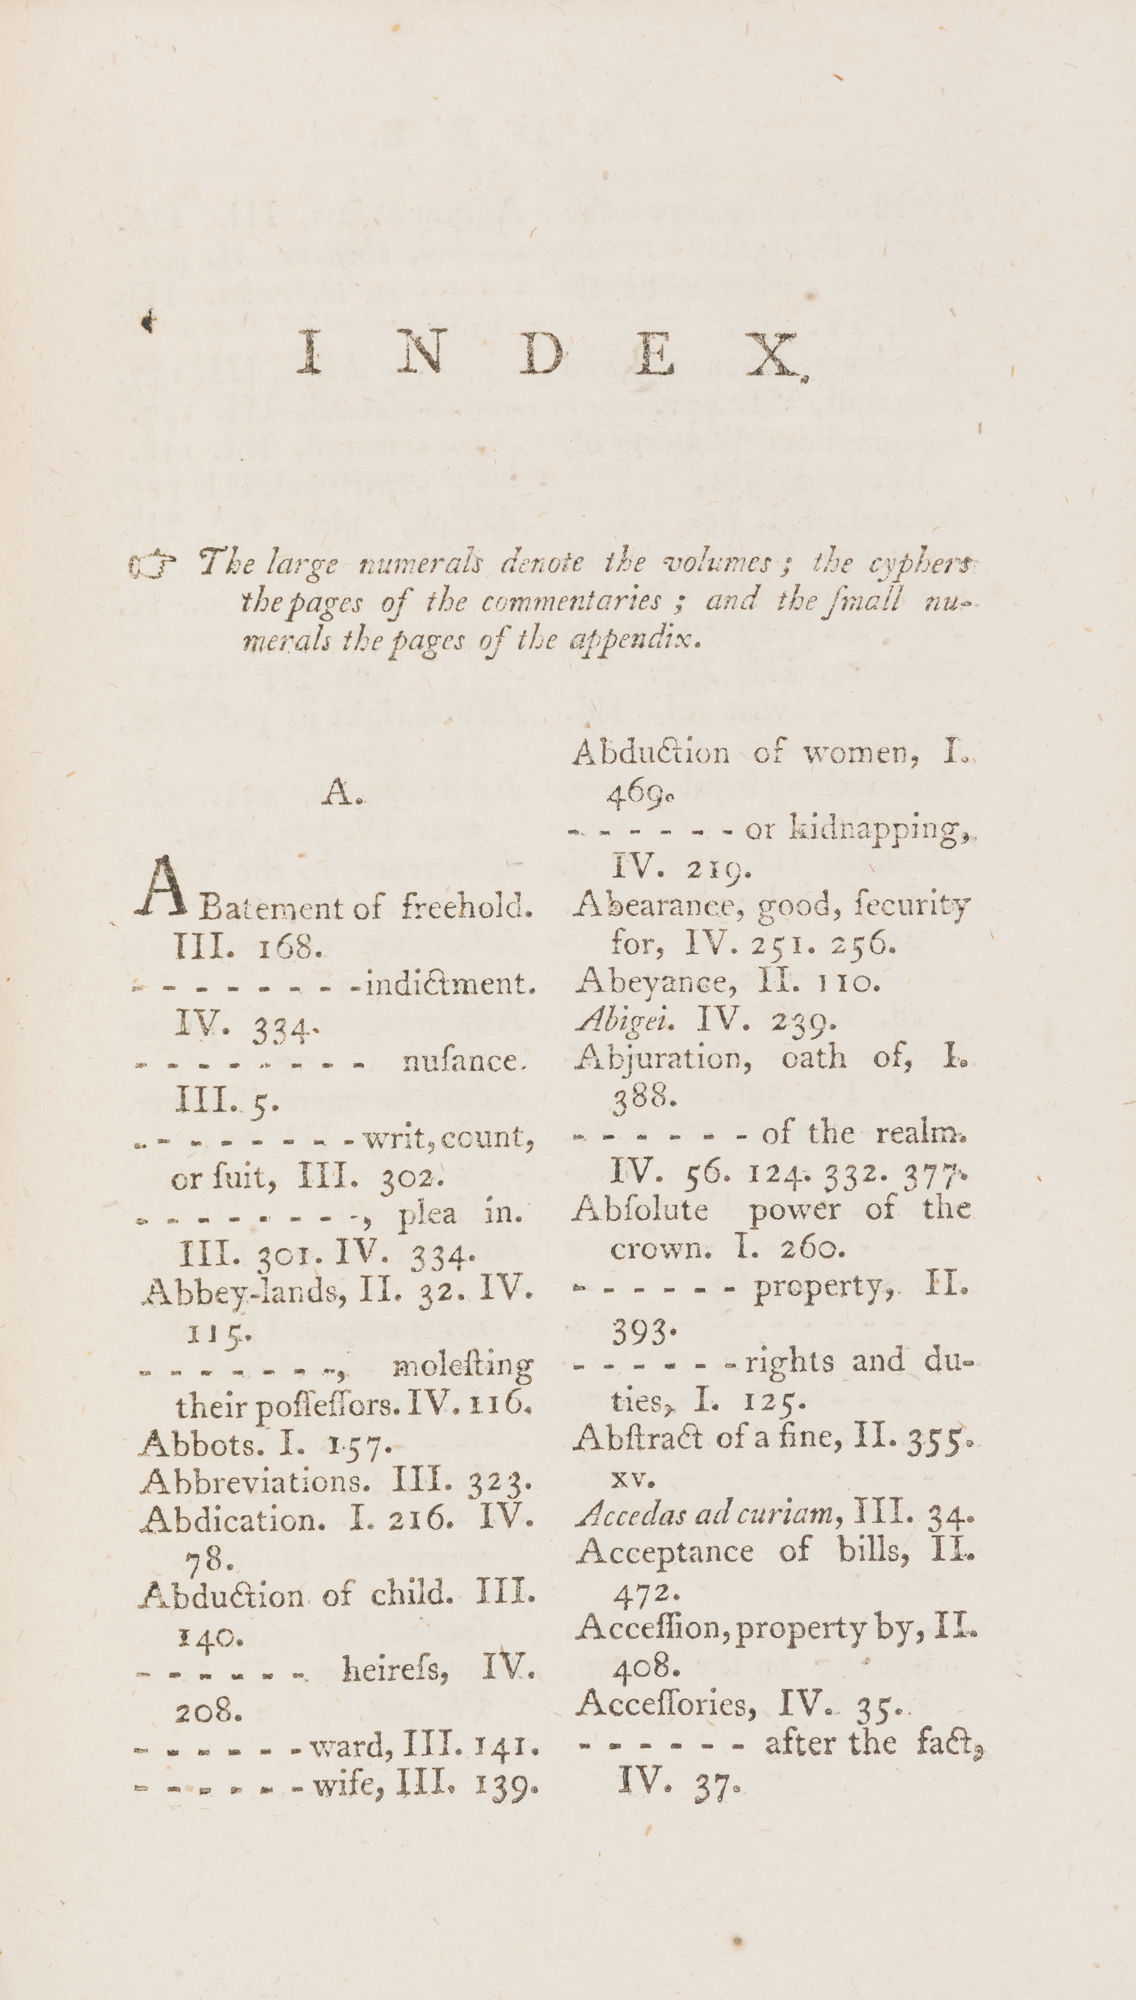 I N D E X.
☞ The large numerals denote the volumes; the cyphers
the pages of the commentaries; and the ſmall nu-
merals the pages of the appendix.
A.
ABatement of freehold.
III. 168.
- - - - - - - -indictment.
IV. 334.
- - - - - - - - nuſance.
III. 5.
- - - - - - - -writ, count,
or ſuit, III. 302.
- - - - - - - -, plea in.
III. 301. IV. 334.
Abbey-lands, II. 32. IV.
115.
- - - - - - -, moleſting
their poſſeſſors. IV. 116.
Abbots. I. 157.
Abbreviations. III. 323.
Abdication. I. 216. IV.
78.
Abduction of child. III.
140.
- - - - - - heireſs, IV.
208.
- - - - - -ward, III. 141.
- - - - - -wife, III. 139.
Abduction of women, I.
469.
- - - - - - or kidnapping,
IV. 219.
Abearance, good, ſecurity
for, IV. 251. 256.
Abeyance, II. 110.
Abigei. IV. 239.
Abjuration, oath of, I.
388.
- - - - - - of the realm.
IV. 56. 124. 332. 377.
Abſolute power of the
crown. I. 260.
- - - - - - property, II.
393.
- - - - - -rights and du-
ties, I. 125.
Abſtract of a fine, II. 355.
xv.
Accedas ad curiam, III. 34.
Acceptance of bills, II.
472.
Acceſſion, property by, II.
408.
Acceſſories, IV. 35.
- - - - - - after the fact,
IV. 37.